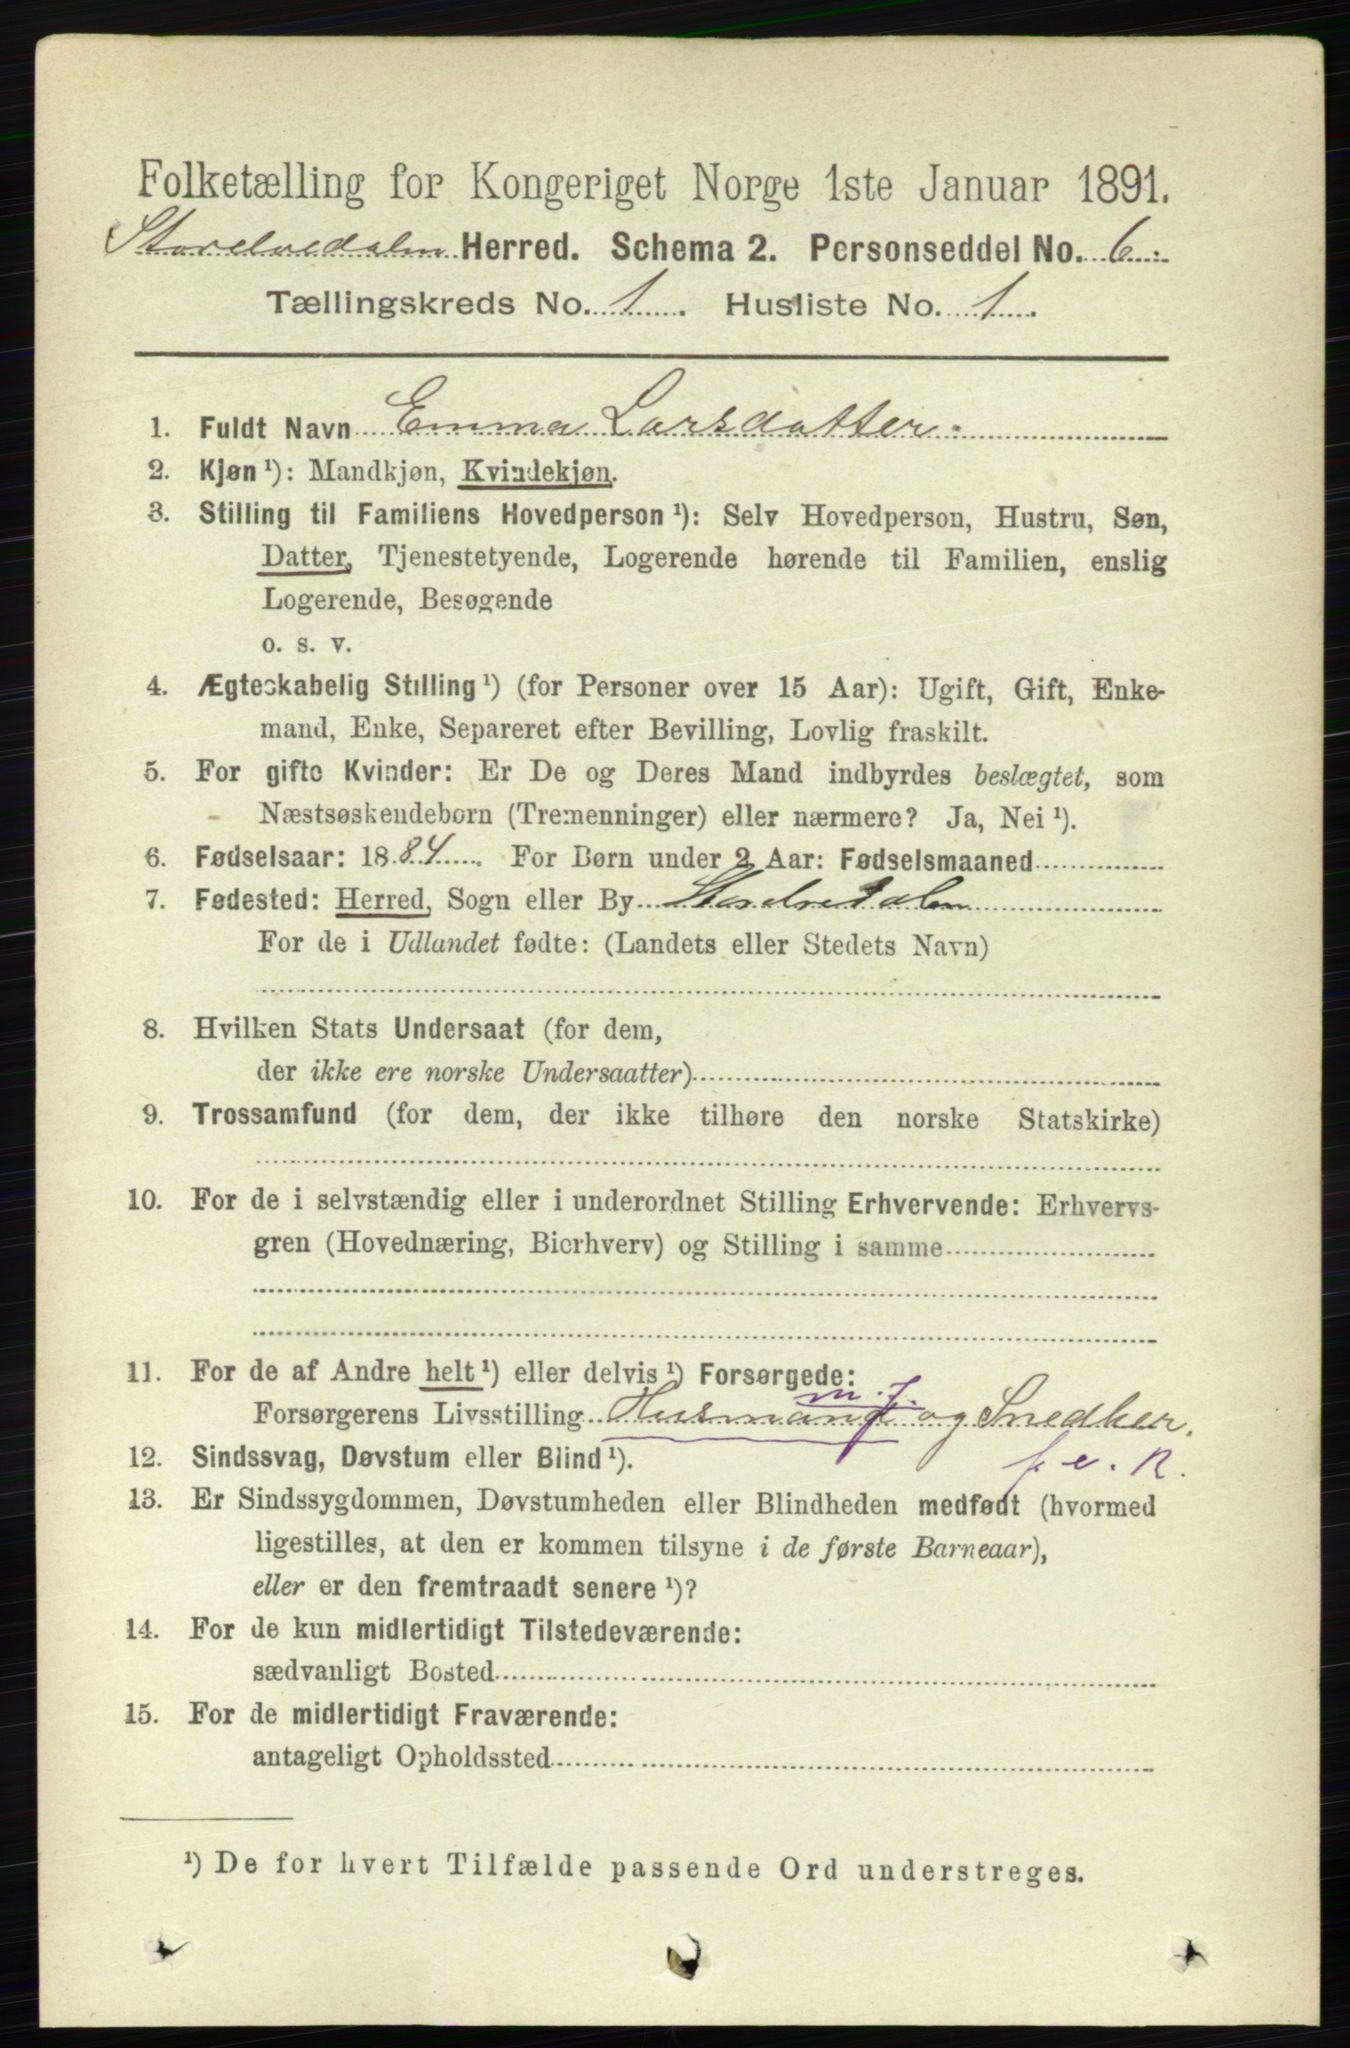 Folketælling for Kongeriget Norge 1ste Januar 1891.
Storelvedalen Herred. Schema 2. Personseddel No. 6.
Tællingskreds No. 1. Husliste No. 1.
1. Fuldt Navn Emma Larsdatter.
2. Kjøn ¹): Mandkjøn, Kvindekjøn.
3. Stilling til Familiens Hovedperson ¹): Selv Hovedperson, Hustru, Søn,
Datter, Tjenestetyende, Logerende hørende til Familien, enslig
Logerende, Besøgende
o. s. v.
4. Ægteskabelig Stilling ¹) (for Personer over 15 Aar): Ugift, Gift, Enke-
mand, Enke, Separeret efter Bevilling, Lovlig fraskilt.
5. For gifte Kvinder: Er De og Deres Mand indbyrdes beslægtet, som
Næstsøskendebørn (Tremenninger) eller nærmere? Ja, Nei ¹).
6. Fødselsaar: 1884. For Børn under 2 Aar: Fødselsmaaned
7. Fødested: Herred, Sogn eller By Storelvedalen
For de i Udlandet fødte: (Landets eller Stedets Navn)
8. Hvilken Stats Undersaat (for dem,
der ikke ere norske Undersaatter)
9. Trossamfund (for dem, der ikke tilhøre den norske Statskirke)
10. For de i selvstændig eller i underordnet Stilling Erhvervende: Erhvervs-
gren (Hovednæring, Bierhverv) og Stilling i samme
11. For de af Andre helt ¹) eller delvis ¹) Forsørgede:
m. J.
Forsørgerens Livsstilling Husmand og Snedker.
12. Sindssvag, Døvstum eller Blind ¹).
13. Er Sindssygdommen, Døvstumheden eller Blindheden medfødt (hvormed
ligestilles, at den er kommen tilsyne i de første Barneaar),
eller er den fremtraadt senere ¹)?
14. For de kun midlertidigt Tilstedeværende:
sædvanligt Bosted
15. For de midlertidigt Fraværende:
antageligt Opholdssted
¹) De for hvert Tilfælde passende Ord understreges.